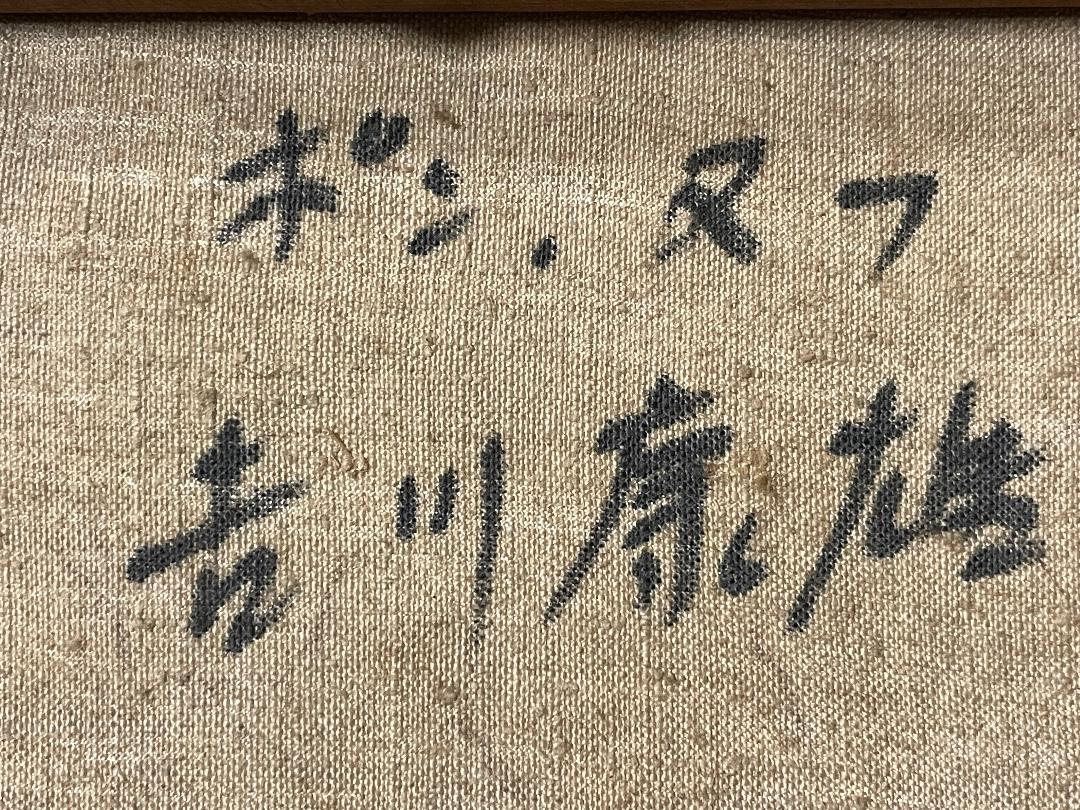 ポン.ヌフ
吉川康雄